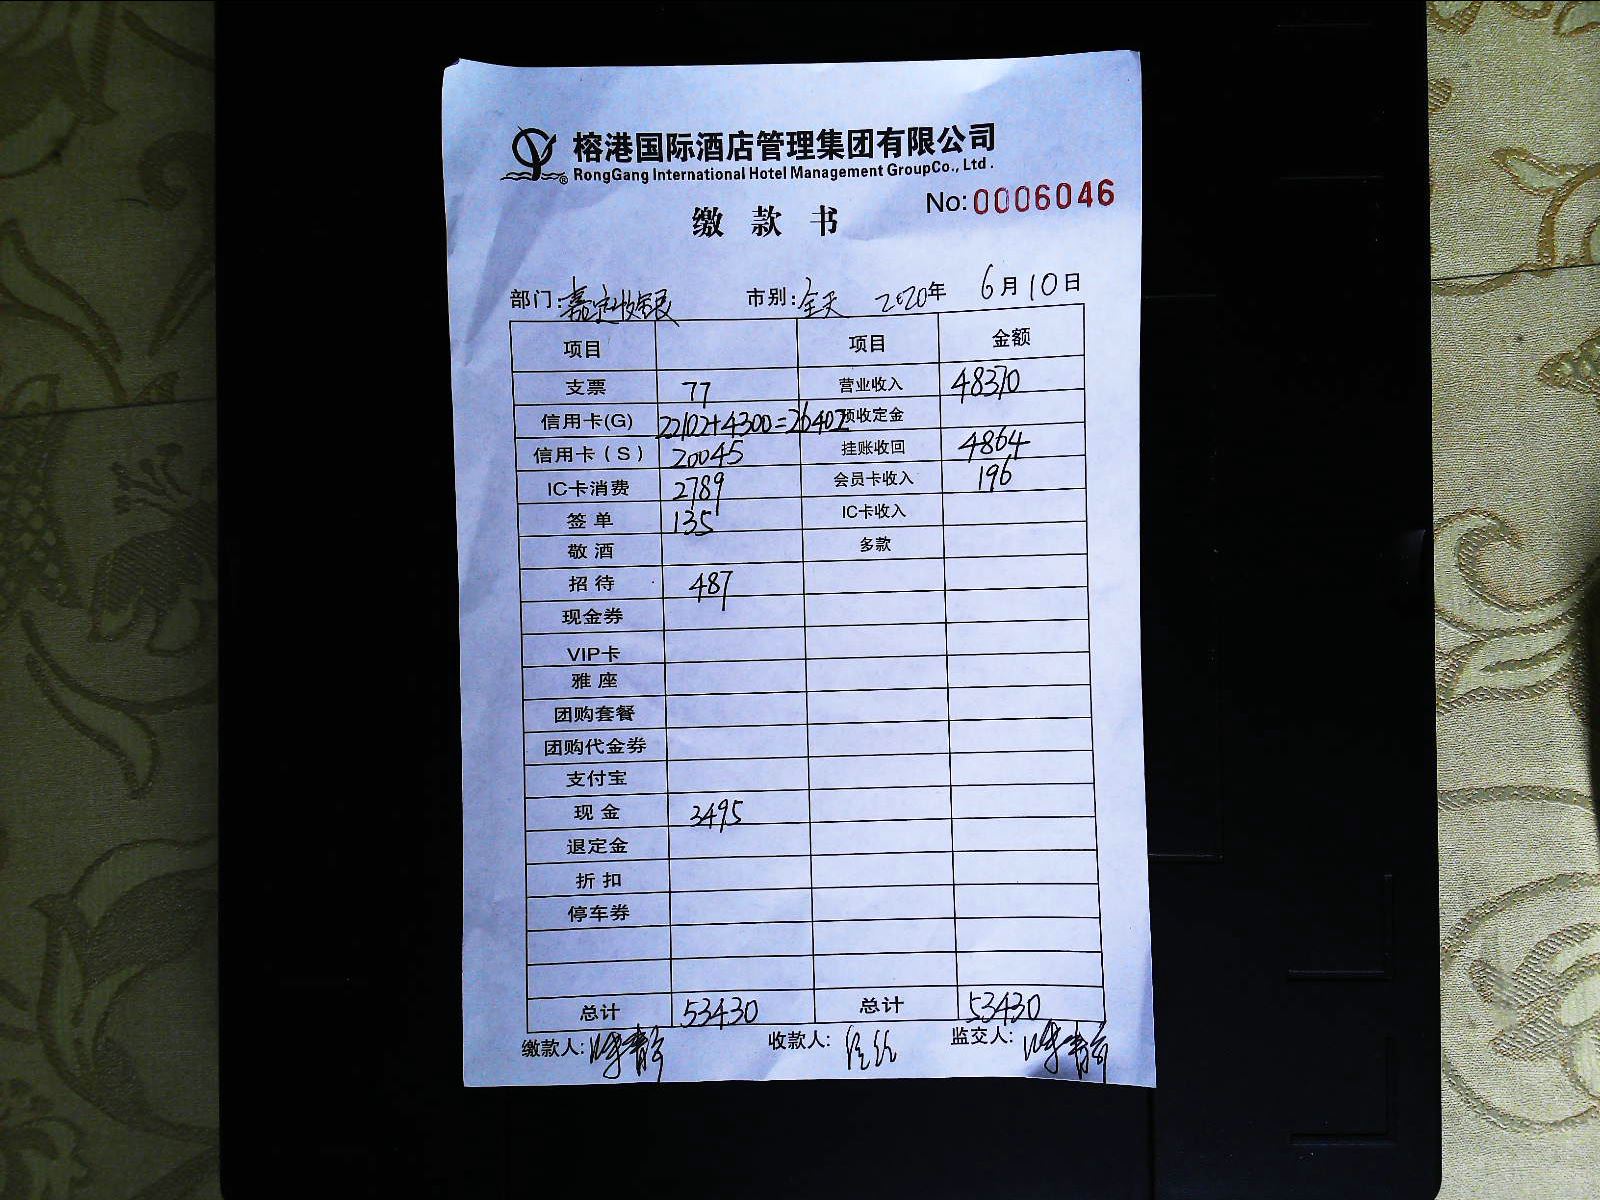 榕港国际酒店管理集团有限公司
RongGang International Hotel Management GroupCo., Ltd.
No:0006046
缴 款 书
部门:嘉定收银 市别:全天 2020年 6月10日
项目 项目 金额
支票 77 营业收入 48370
信用卡(G) 22102+4300=26402 预收定金
信用卡(S) 20045 挂账收回 4864
IC卡消费 2789 会员卡收入 196
签单 135 IC卡收入
敬酒 多款
招待 487
现金券
VIP卡
雅座
团购套餐
团购代金券
支付宝
现金 3495
退定金
折扣
停车券
总计 53430 总计 53430
缴款人: 收款人: 监交人: